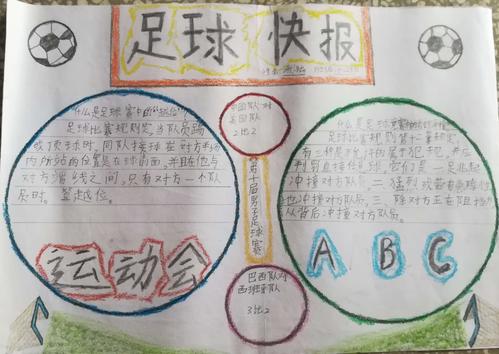 足球 快报
什么是足球赛中的“越位”?
足球比赛规则定，当队员踢
或顶球时，同队接球在对方半场
内所站的位置是在球前面，并且他与
对方端线之间，只有对方一个队
员时。算越位。
运动会
美国队
2出2
第十届男子足球赛
巴西队对
西班牙队
3出2
什么是足球
足球比赛规则第十二章规定
有三种是对
判罚直接任意球
冲撞对方队员。二、猛烈或
地冲撞对方队员。三、除对方正在阻挡
从背后冲撞对方队员。
A B C